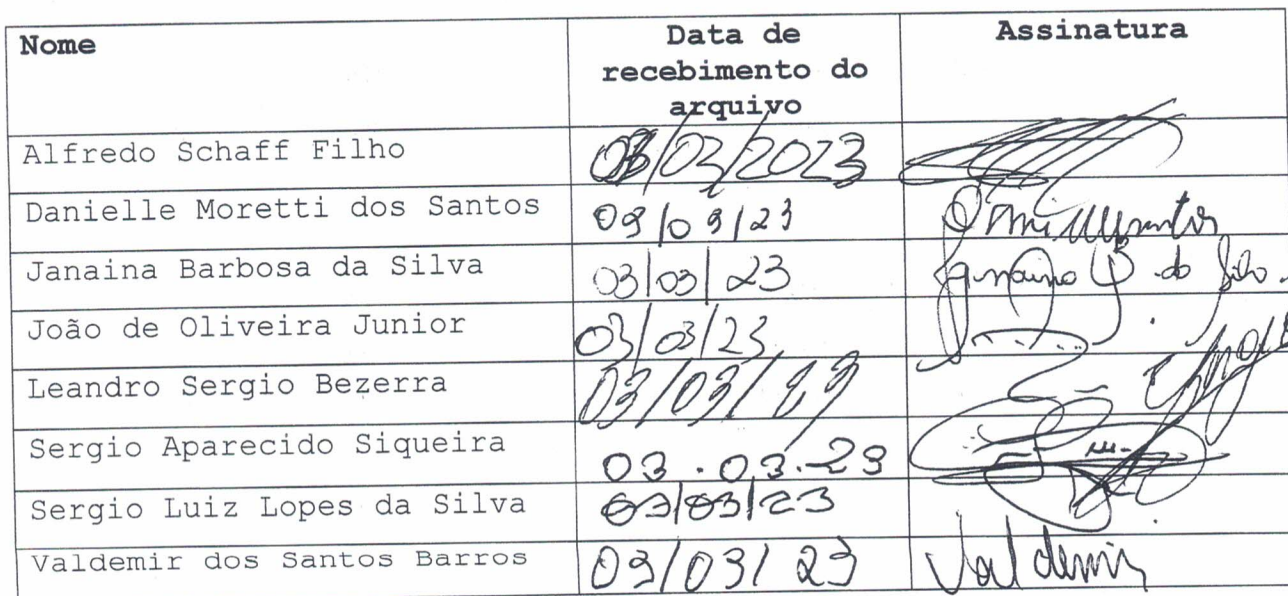 Nome
Data de
recebimento do
arquivo
Assinatura
Alfredo Schaff Filho 03/03/2023
Danielle Moretti dos Santos 03/03/23
Janaina Barbosa da Silva 03/03/23 Janaina B. da Silva.
João de Oliveira Junior 03/03/23
Leandro Sergio Bezerra 03/03/23
Sergio Aparecido Siqueira 03.03.23
Sergio Luiz Lopes da Silva 03/03/23
Valdemir dos Santos Barros 03/03/23 Valdemir